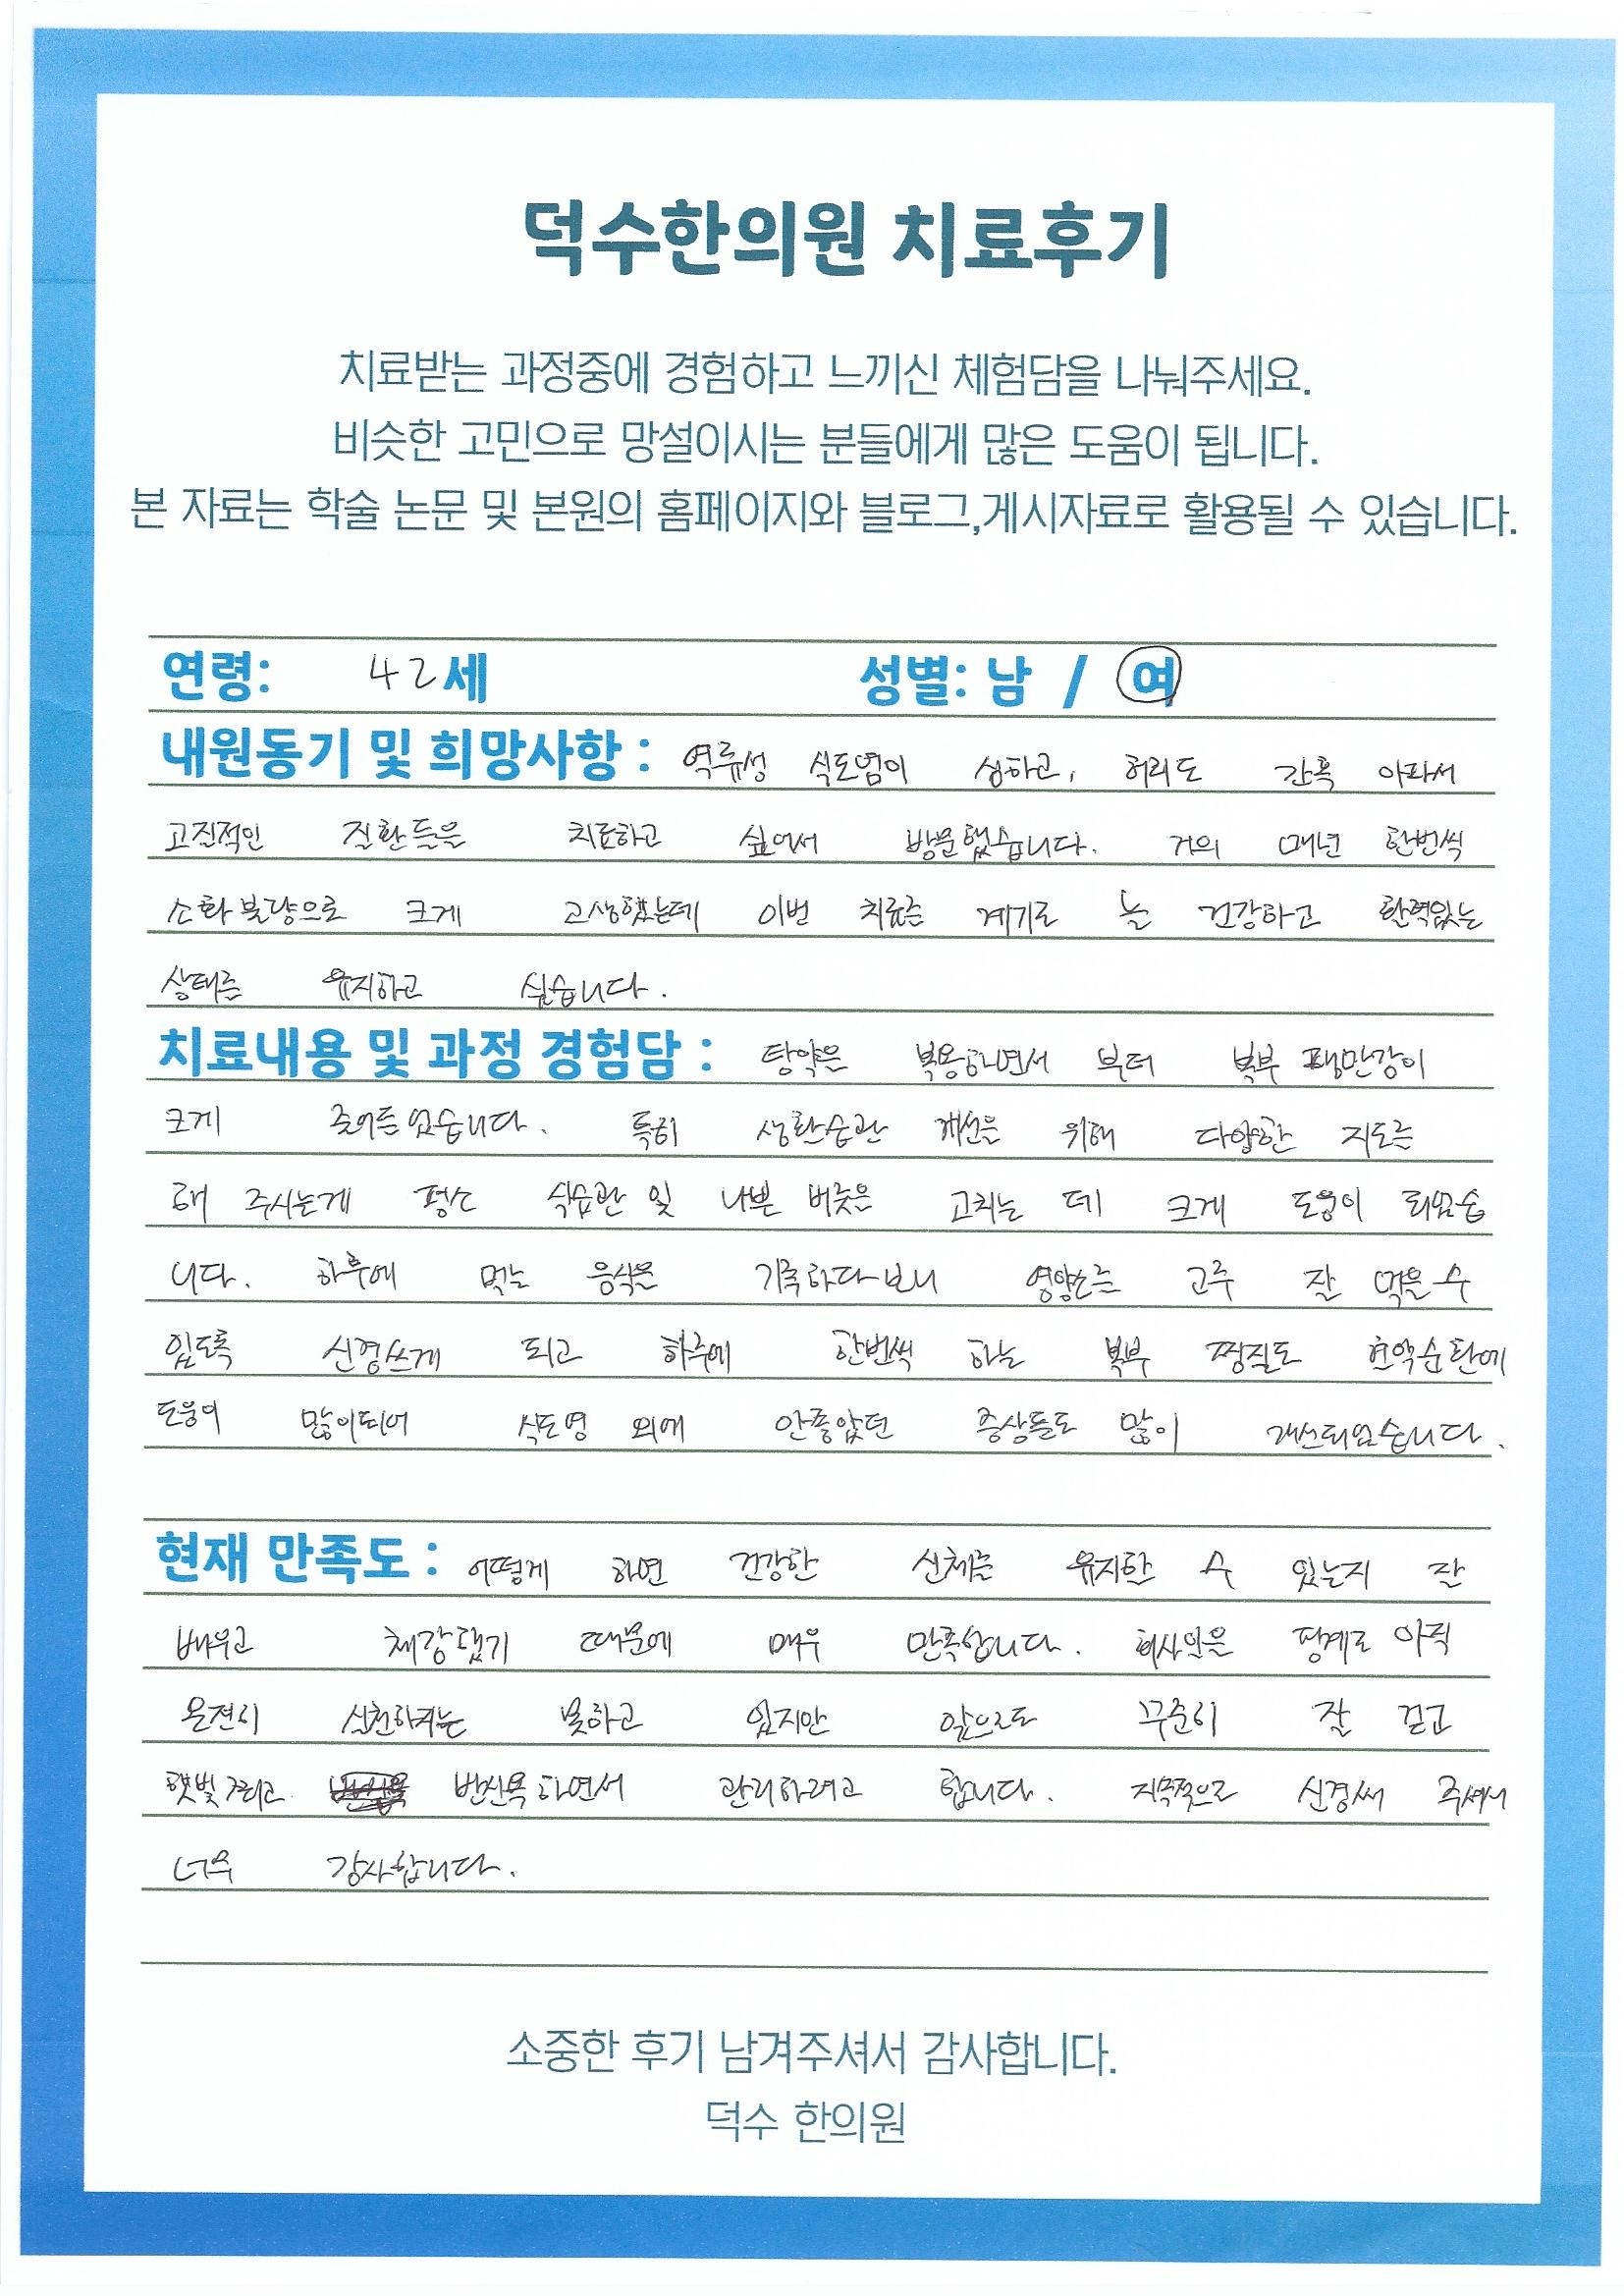 덕수한의원 치료후기
치료받는 과정중에 경험하고 느끼신 체험담을 나눠주세요.
비슷한 고민으로 망설이시는 분들에게 많은 도움이 됩니다.
본 자료는 학술 논문 및 본원의 홈페이지와 블로그,게시자료로 활용될 수 있습니다.
연령: 42세 성별: 남 / 여
내원동기 및 희망사항 : 역류성 식도염이 심하고, 허리도 간혹 아파서
고질적인 질환들을 치료하고 싶어서 방문했습니다. 거의 매년 한번씩
소화불량으로 크게 고생했는데 이번 치료를 계기로 늘 건강하고 활력있는
상태를 유지하고 싶습니다.
치료내용 및 과정 경험담 : 탕약을 복용하면서 부터 복부 팽만감이
크게 줄어들었습니다. 특히 생활습관 개선을 위해 다양한 지도를
해 주시는게 평소 식습관 및 나쁜 버릇을 고치는 데 크게 도움이 되었습
니다. 하루에 먹는 음식을 기록하다보니 영양소를 고루 잘 먹을 수
있도록 신경쓰게 되고 하루에 한번씩 하는 복부 찜질도 혈액순환에
도움이 많이되어 식도염 외에 안좋았던 증상들도 많이 개선되었습니다.
현재 만족도 : 어떻게 하면 건강한 신체를 유지할 수 있는지 잘
배우고 체감했기 때문에 매우 만족합니다. 회사일을 핑계로 아직
온전히 실천하지는 못하고 있지만 앞으로도 꾸준히 잘 걷고
햇빛 그리고 반신욕하면서 관리하려고 합니다. 지속적으로 신경써 주셔서
너무 감사합니다.
소중한 후기 남겨주셔서 감사합니다.
덕수 한의원